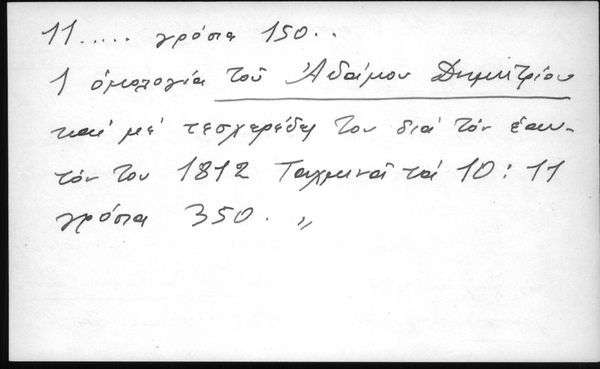 11..... γρόσια 150..
1 ὁμολογία τοῦ Ἀδάμου Δημητρίου
καί μέ τεσχερέδες του διά τόν ἑαυ-
τόν του 1812 ταί 10: 11
γρόσια 350. „